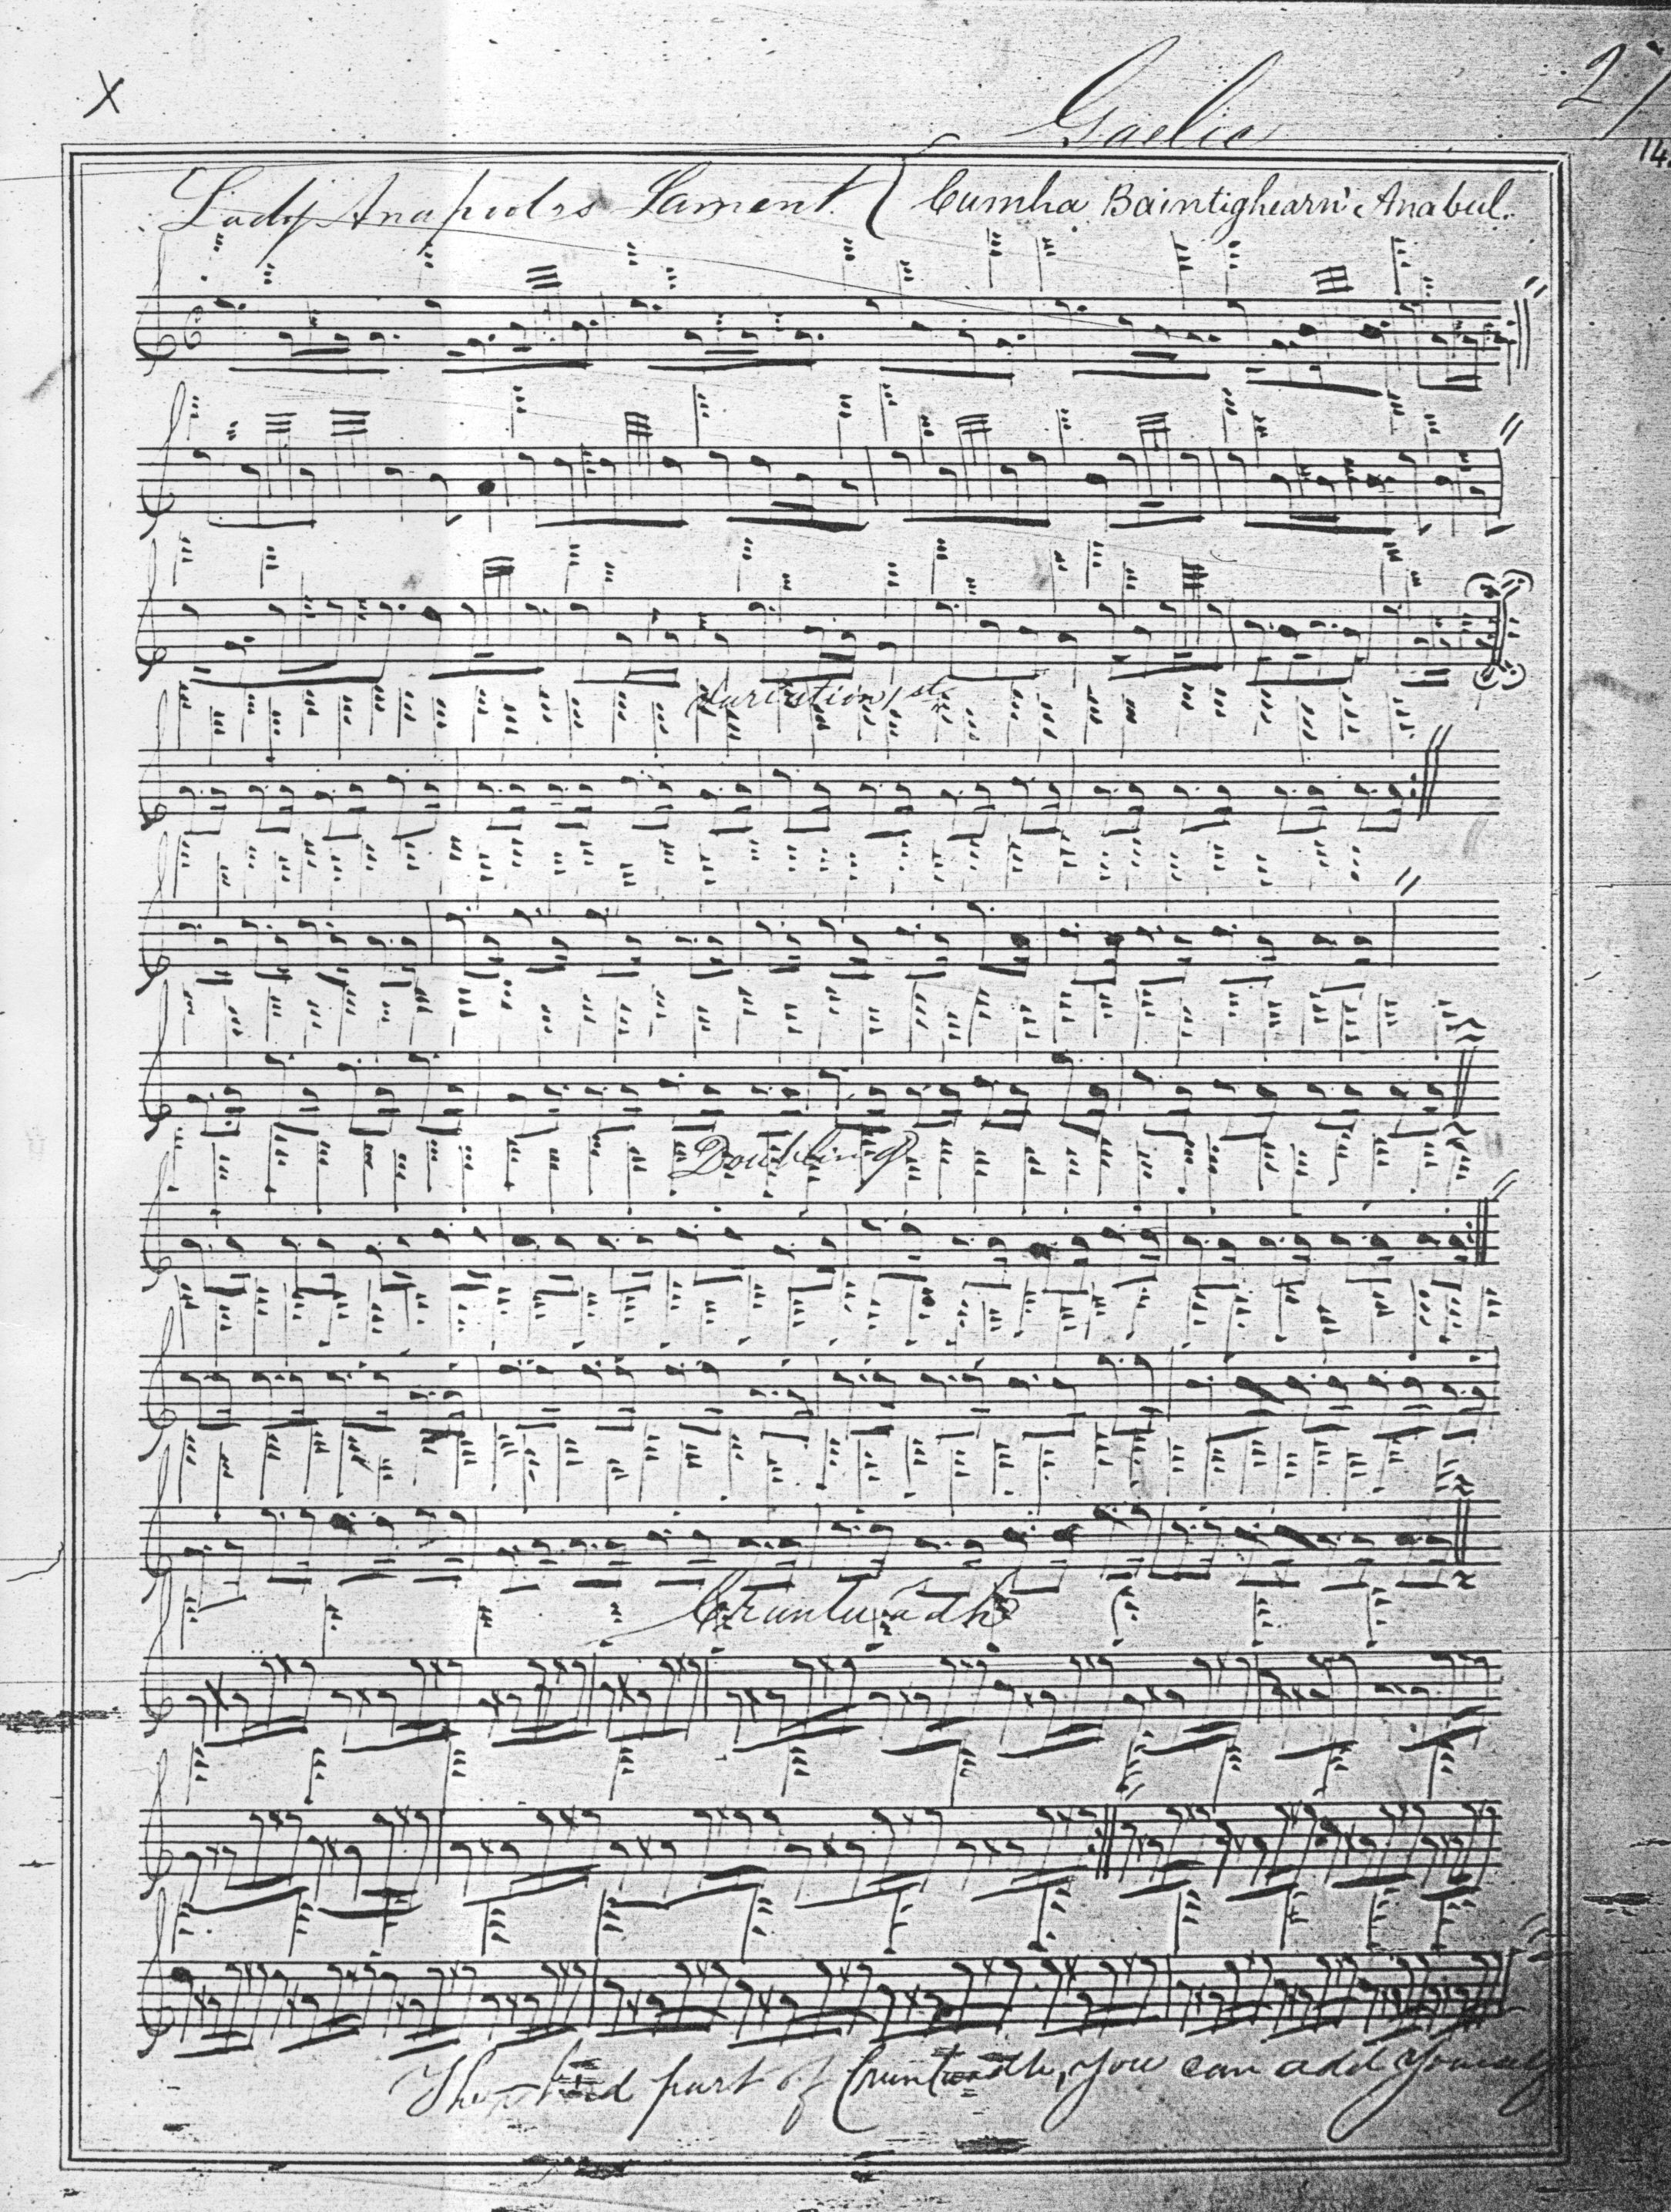 X
Gaelic
27
14
Lady Anapools Lament. Cumha Baintighearn' Anabul.
Variation 1st
Doubling
Crunluadh
The third part of Crunluadh, you can add yourself